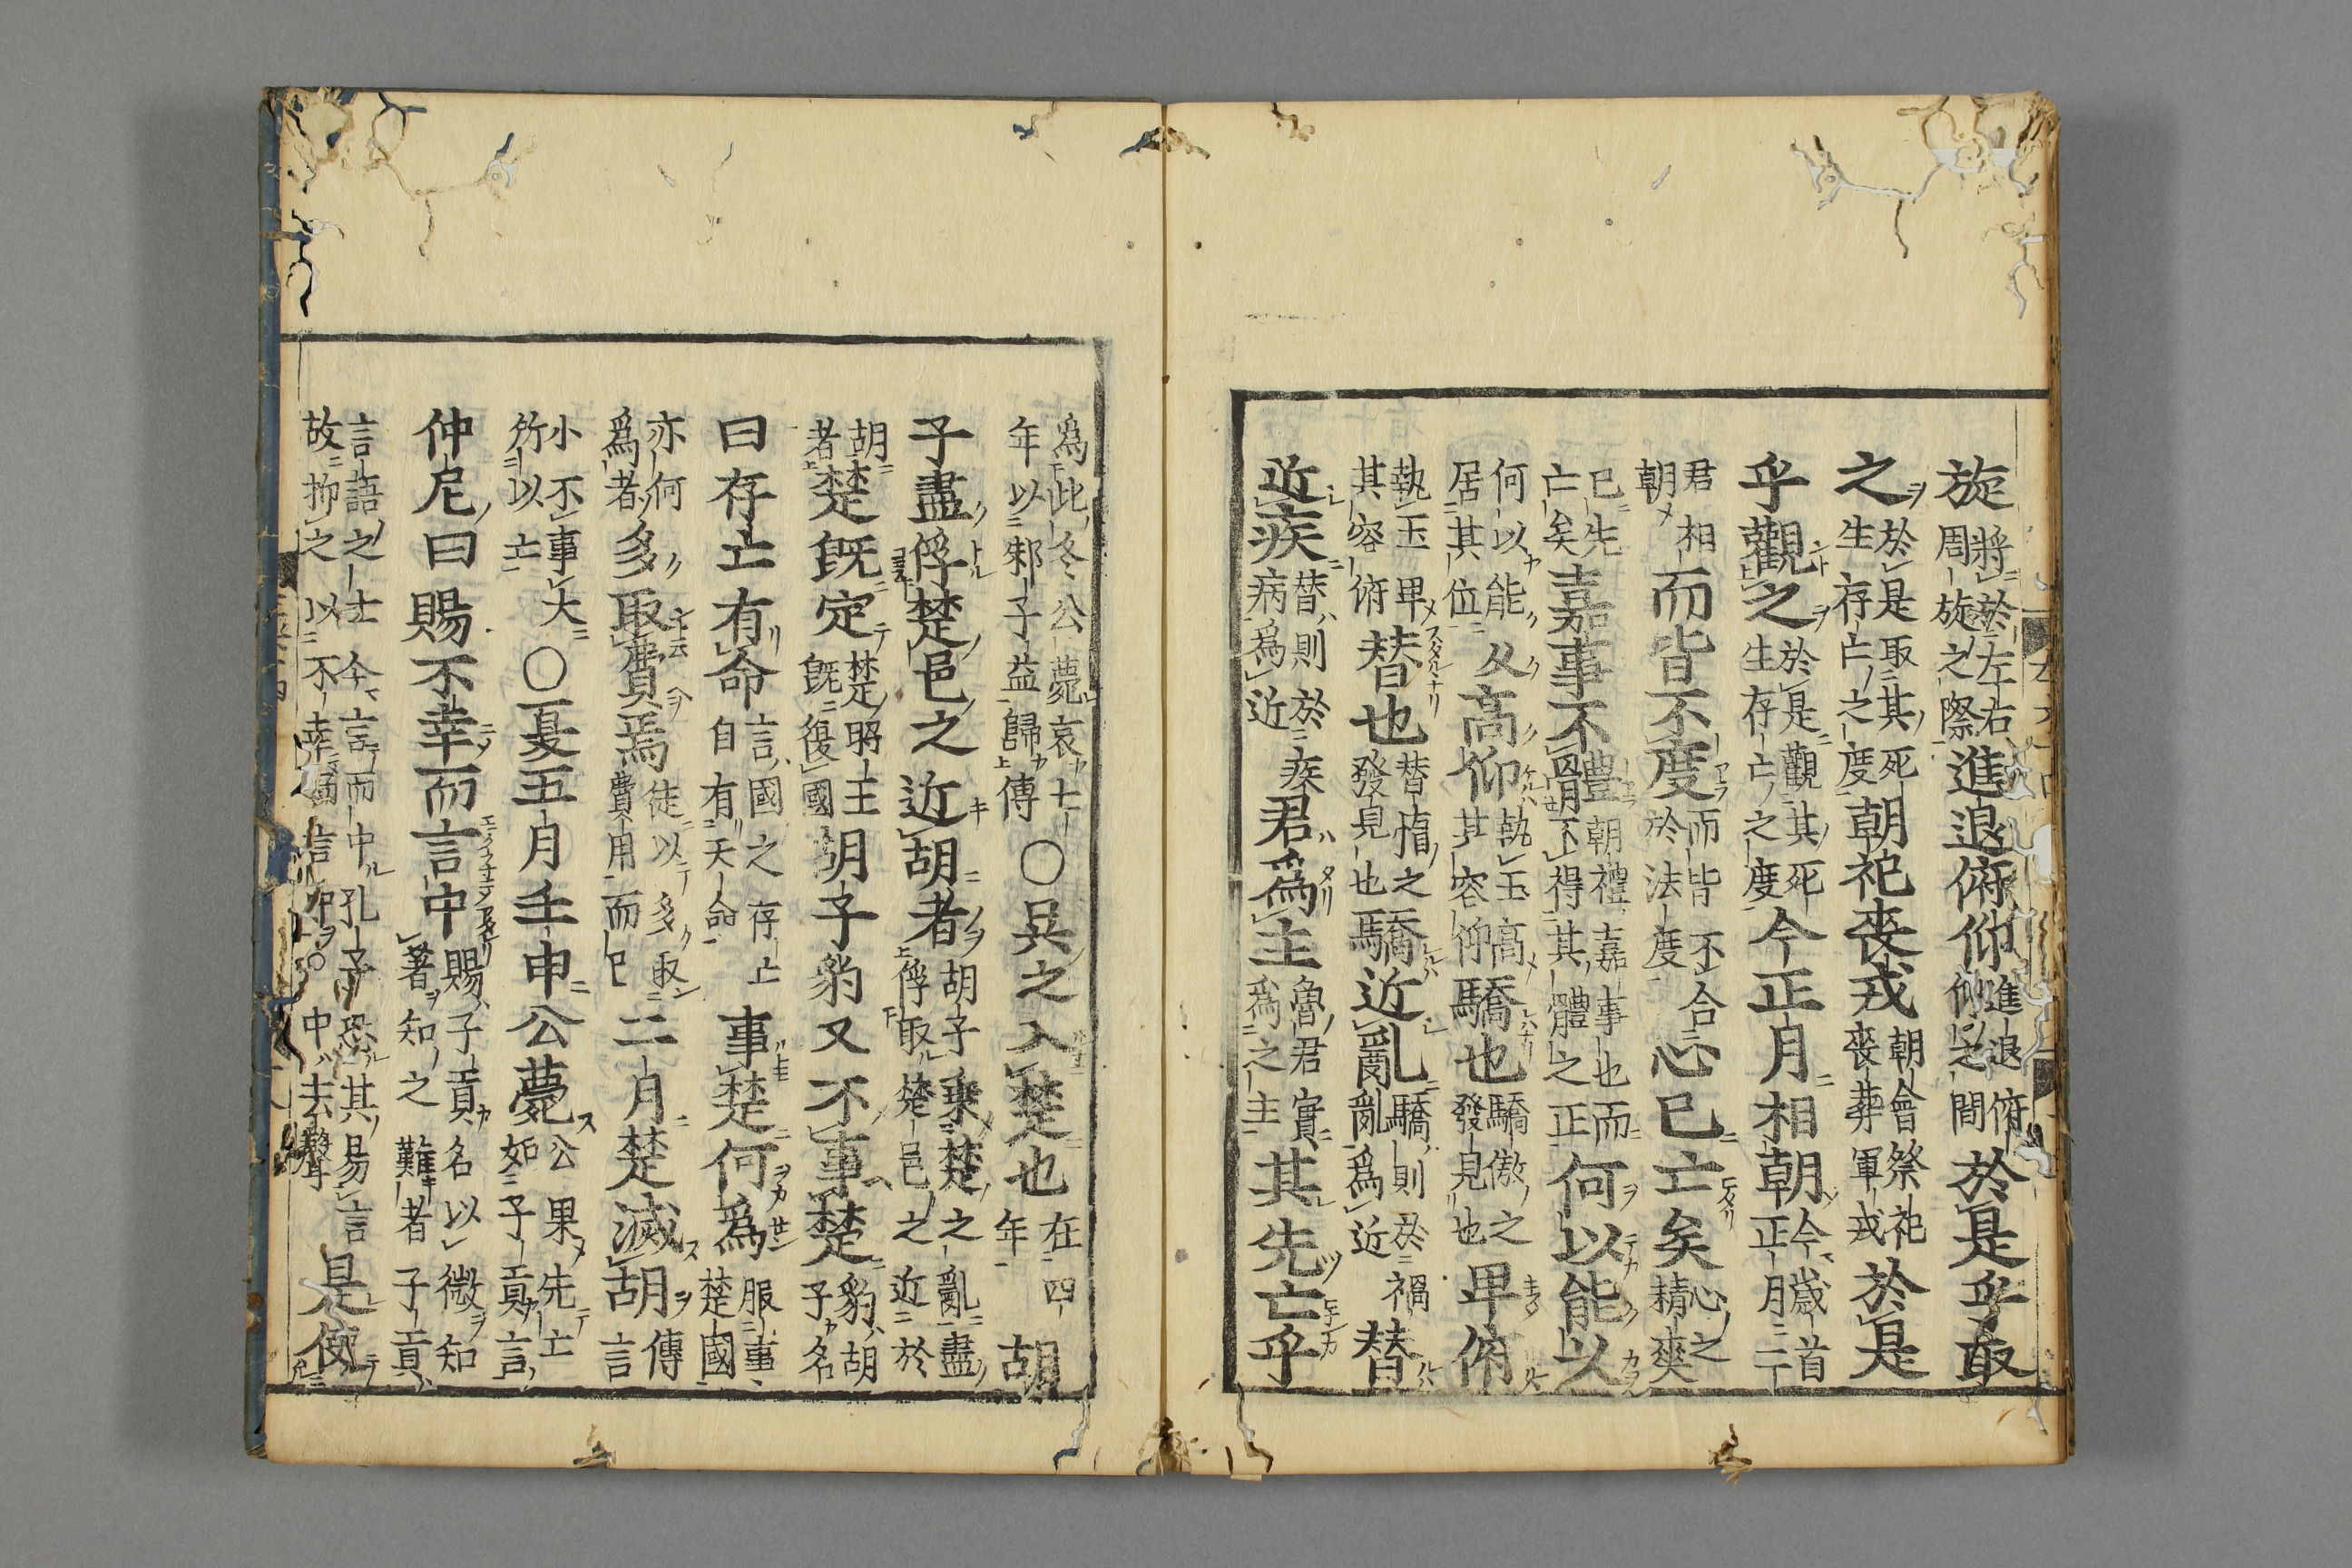 旋將於左右周旋之際進退俯仰進退俯仰之間於是乎取
之於是取其死生存亡之度朝祀喪戎朝會祭祀喪葬軍戎於是
乎觀之於是觀其死生存亡之度今正月相朝今歲首正月二
君相朝而皆不度而皆不合於法度心已亡矣心之精爽
已先亡矣嘉事不體朝禮嘉事也而不得其體之正何以能以
何以能久居其位高仰執玉高其容仰驕也驕傲之發見也卑俯
執玉卑其容俯替也替惰之發見也驕近亂驕則於禍亂爲近替
近疾替則於疾病爲近君爲主魯君實爲之主其先亡乎
爲此冬公薨哀七年以邾子益歸傳〇吳之入楚也在四年胡
子盡俘楚邑之近胡者胡子乘楚之亂盡俘取楚邑之近於
胡者楚旣定楚昭王旣復國胡子豹又不事楚豹胡子名
曰存亡有命言國之存亡自有天命事楚何爲服事楚國
亦何爲者多取費焉徒以多取費用而已二月楚滅胡傳言
小不事大所以亡〇夏五月壬申公薨公果先亡如子貢言
仲尼曰賜不幸而言中賜子貢名以微知著知之難者子貢
言語之士今言而中孔子恐其易言故抑之以不幸言中〇中去聲是使